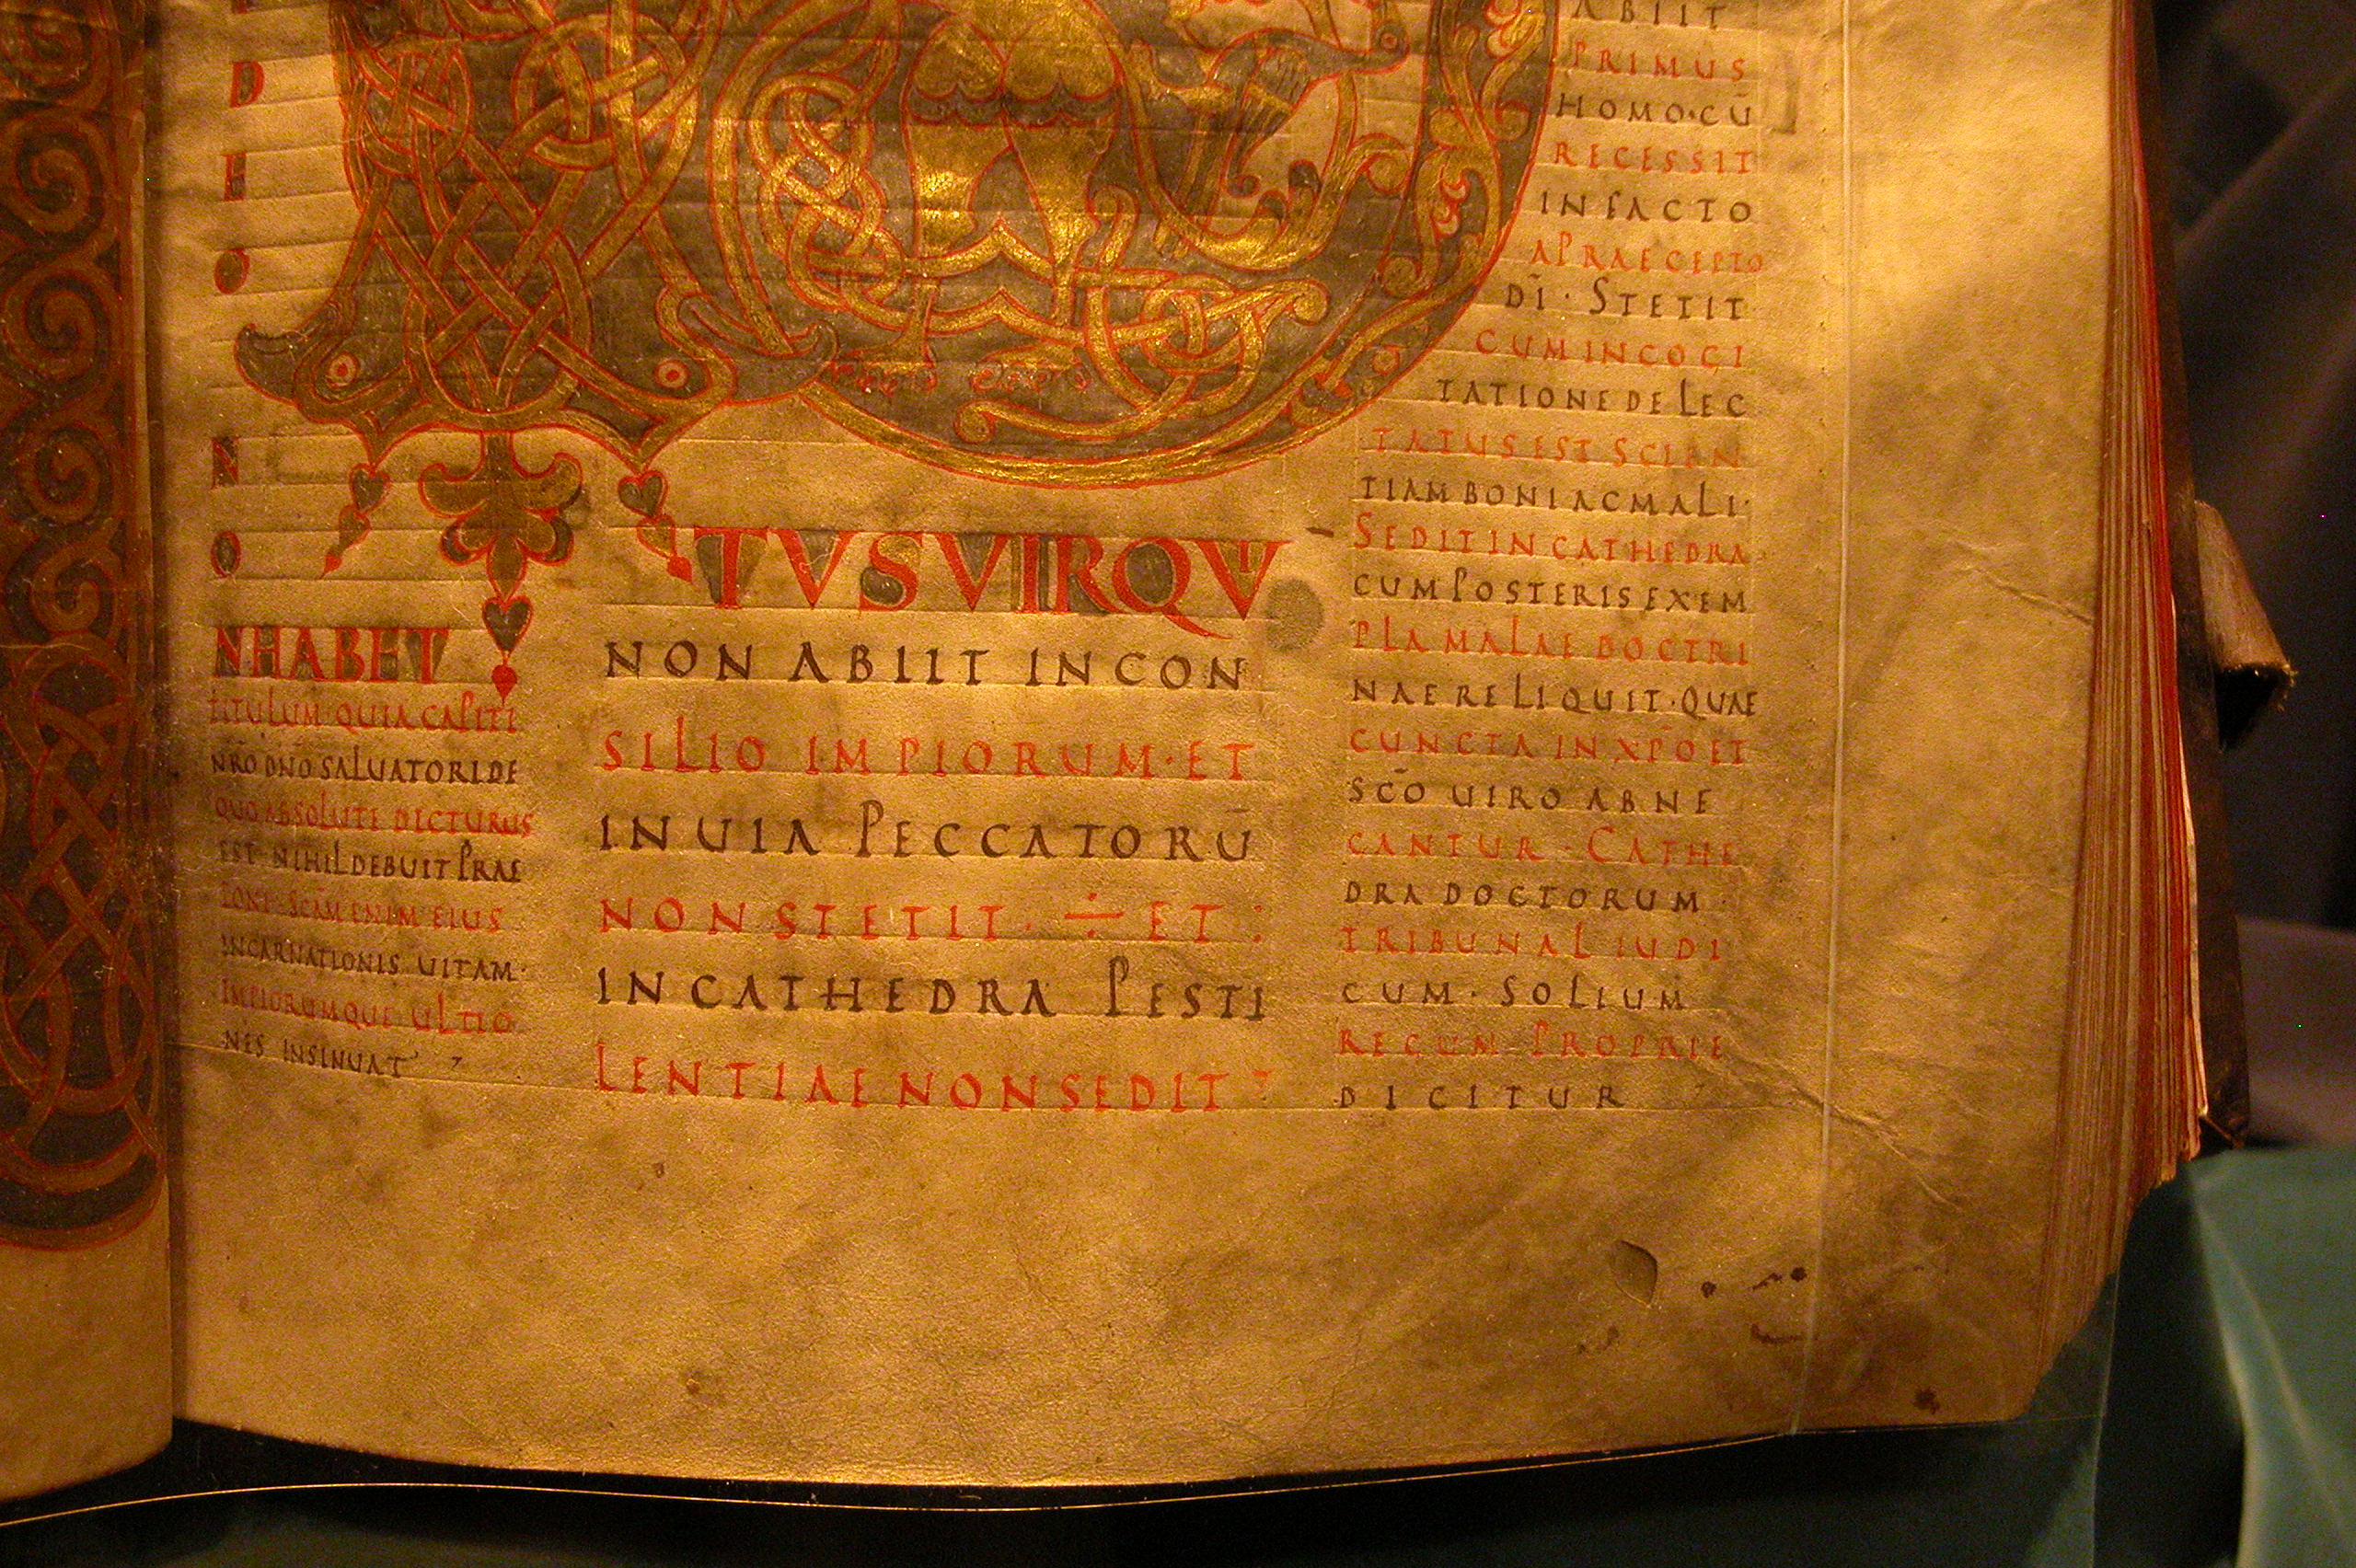 D
E
O
N
O
NHABET
TITULUM QUIA CAPITI
NR̄O DN̄O SALUATORI DE
QUO ABSOLUTE DICTURUS
EST NIHIL DEBUIT PRAE
PONI· SCĀM ENIM EIUS
INCARNATIONIS UITAM·
IMPIORUMQUE ULTIO
NES INSINUAT
TVS VIR QV
NON ABIIT IN CON
SILIO IMPIORUM· ET
IN UIA PECCATORŪ
NON STETIT· ÷ ET :
IN CATHEDRA PESTI
LENTIAE NON SEDIT
ABIIT
PRIMUS
HOMO· CŪ
RECESSIT
IN FACTO
A PRAECEPTO
DĪ· STETIT
CUM IN COGI
TATIONE DELEC
TATUS EST SCIEN
TIAM BONI AC MALI·
SEDIT IN CATHEDRA
CUM POSTERIS EXEM
PLA MALAE DOCTRI
NAE RELIQUIT· QUAE
CUNCTA IN XP̄O ET
SC̄O UIRO ABNE
CANTUR· CATHE
DRA DOCTORUM·
TRIBUNAL IUDI
CUM· SOLIUM
REGUM PROPRIE
DICITUR